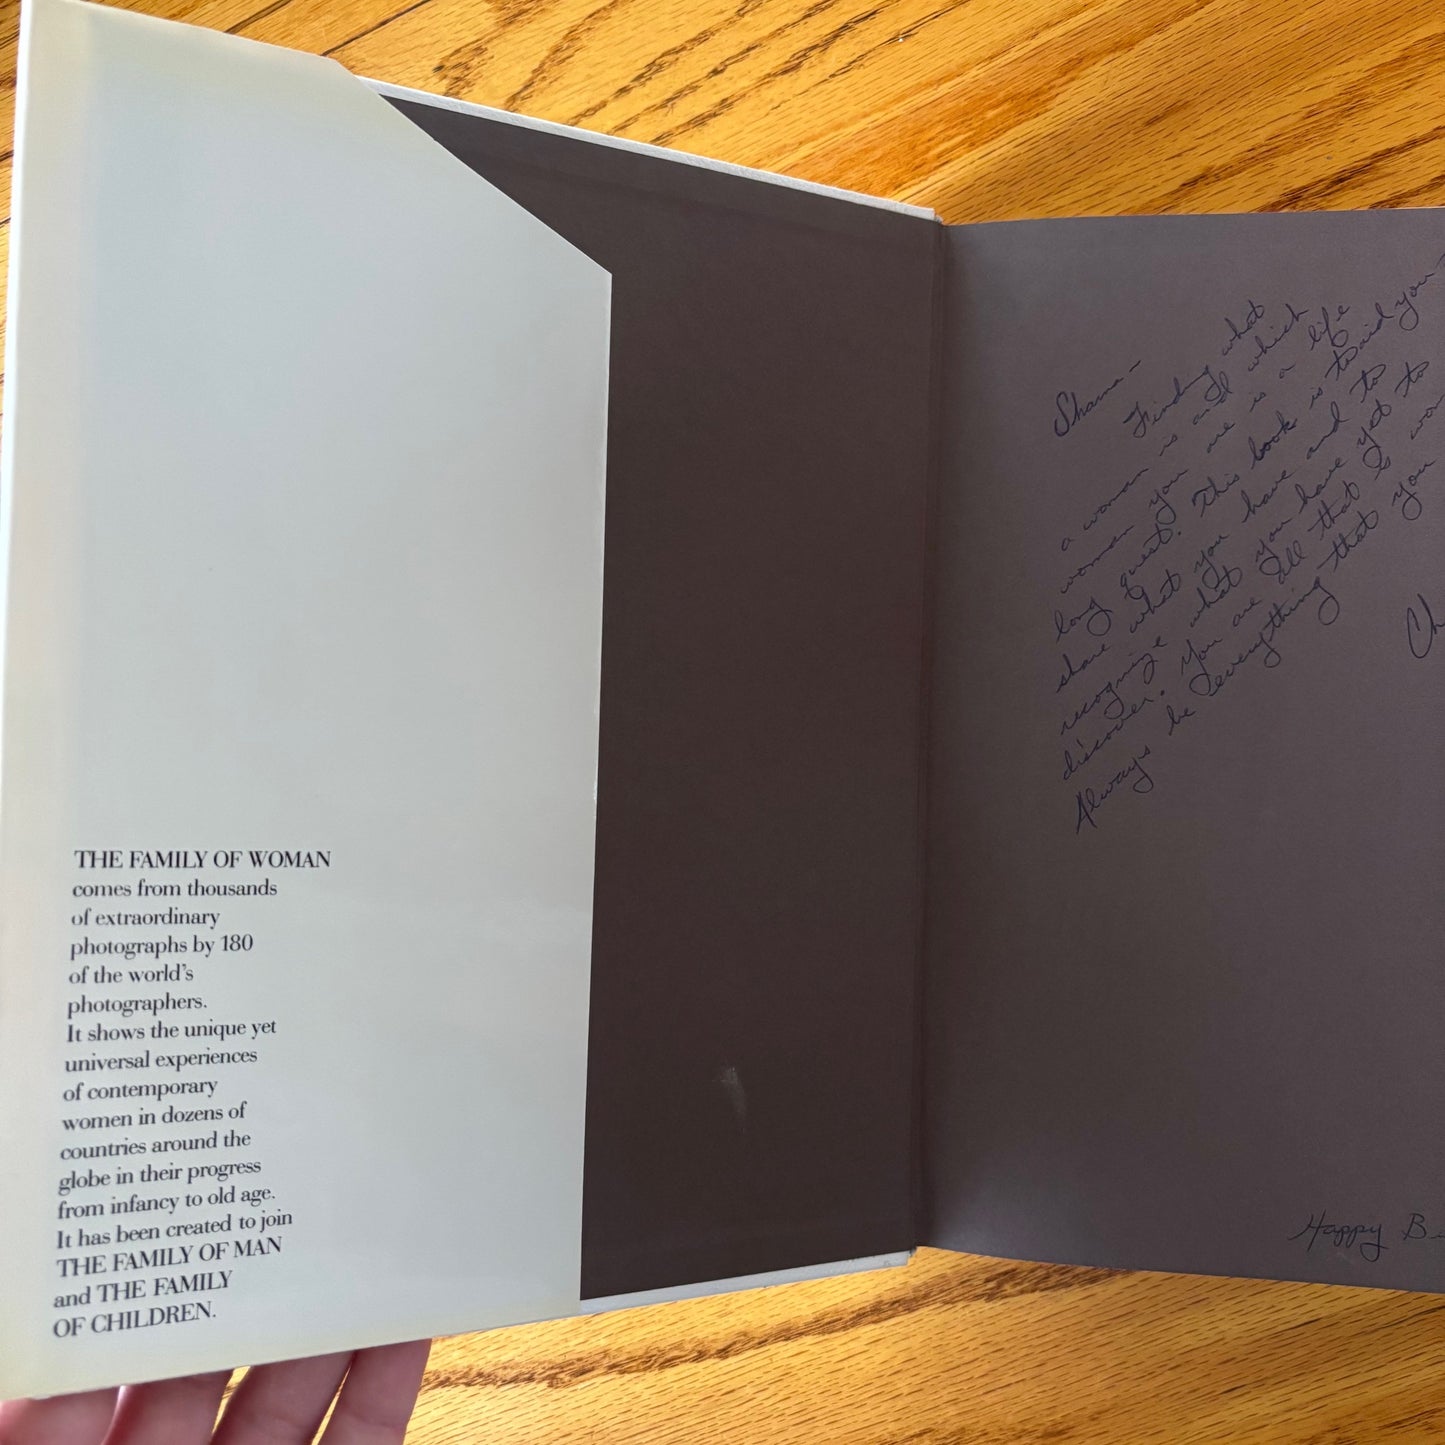 THE FAMILY OF WOMAN
comes from thousands
of extraordinary
photographs by 180
of the world's
photographers.
It shows the unique yet
universal experiences
of contemporary
women in dozens of
countries around the
globe in their progress
from infancy to old age.
It has been created to join
THE FAMILY OF MAN
and THE FAMILY
OF CHILDREN.
Shama-
Finding what
a woman is and which
woman you are is a life
long quest. This book is to aid you-
share what you have and to
recognize what you have yet to
discover. You are all that is
Always be everything that you
Happy